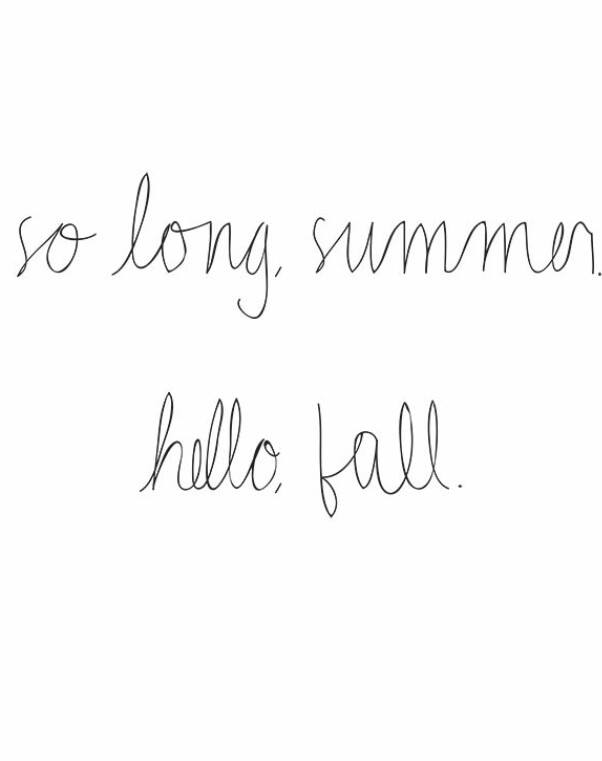 so long, summer.
hello, fall.